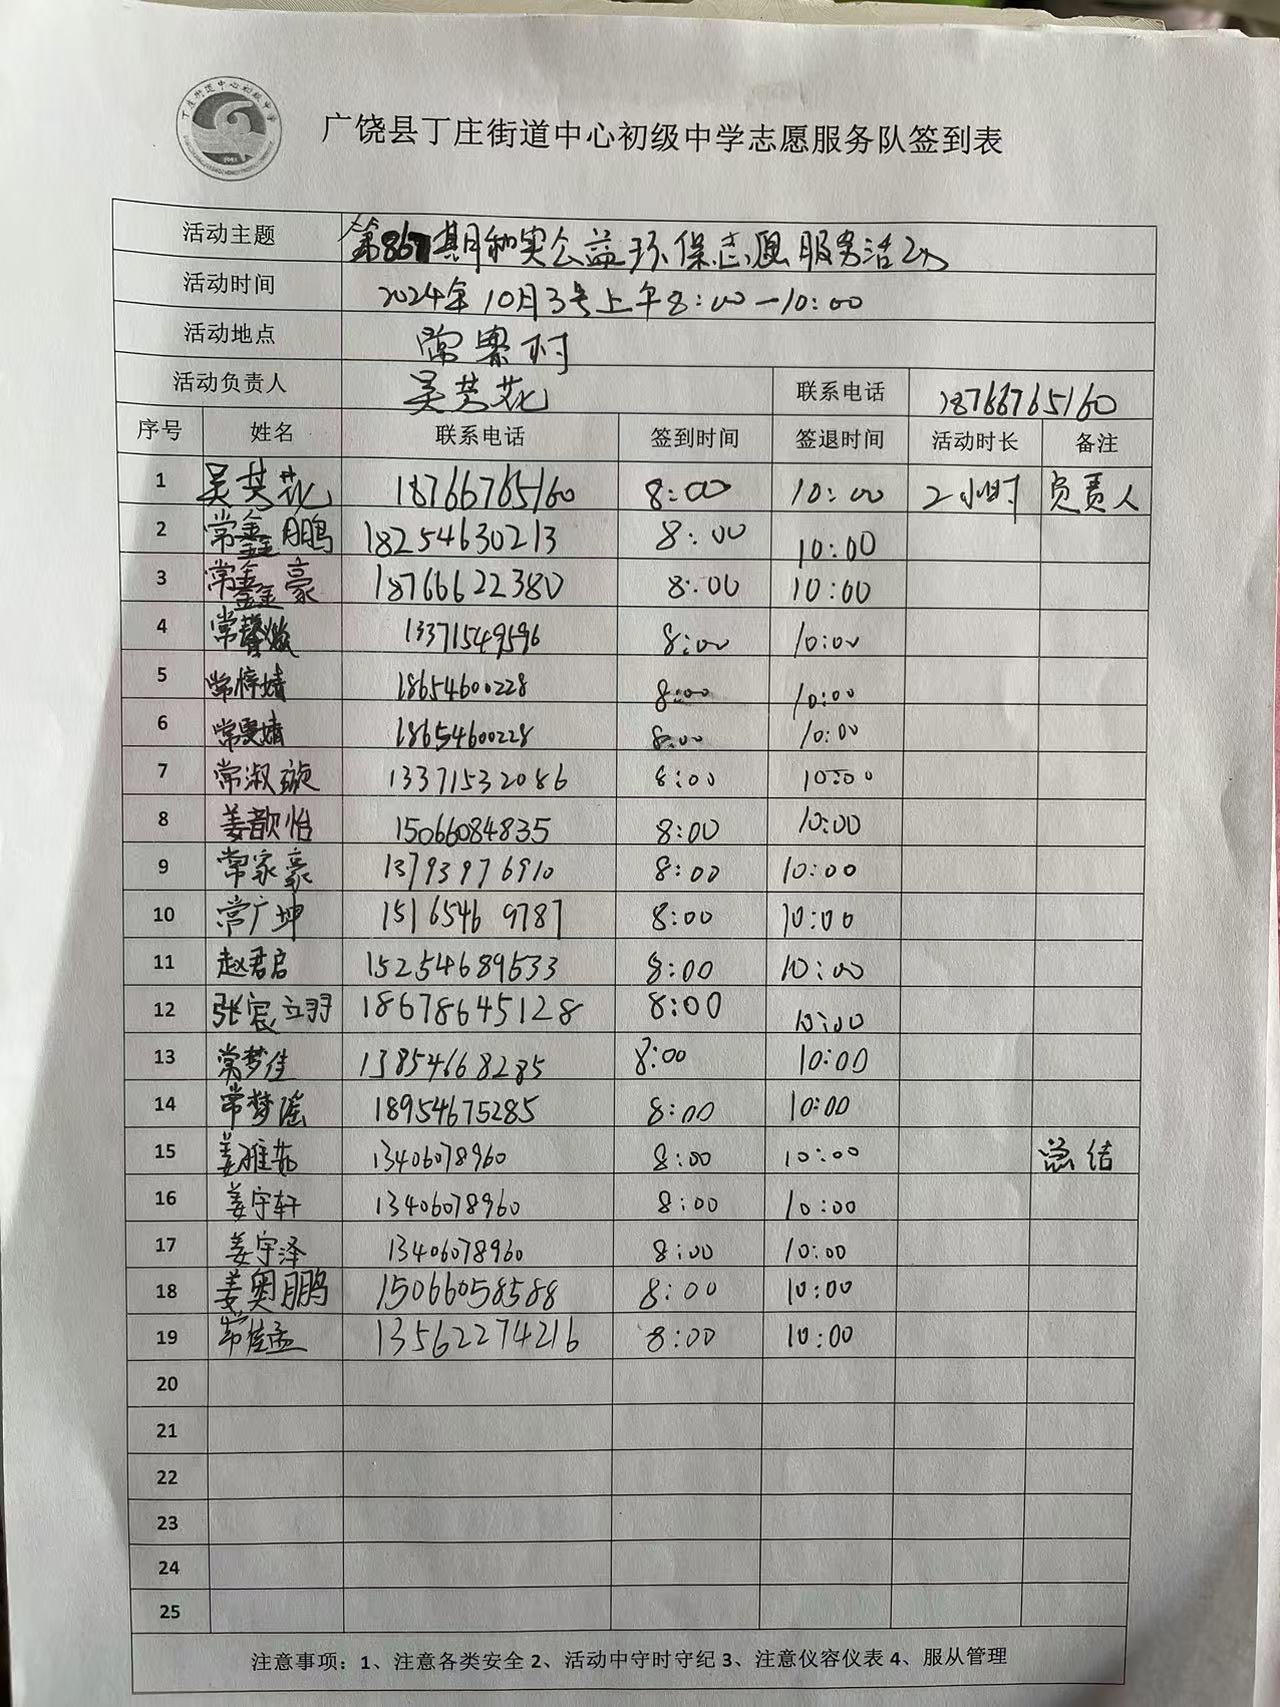 丁庄街道中心初级中学
广饶县丁庄街道中心初级中学志愿服务队签到表
活动主题 第867期和实公益环保志愿服务活动
活动时间 2024年10月3号上午8:00-10:00
活动地点 常寨村
活动负责人 吴芳花 联系电话 18766765160
序号 姓名 联系电话 签到时间 签退时间 活动时长 备注
1 吴芳花 18766765160 8:00 10:00 2小时 负责人
2 常鑫鹏 18254630213 8:00 10:00
3 常鑫豪 18766622380 8:00 10:00
4 常馨 13371549596 8:00 10:00
5 常梓婧 18654600228 8:00 10:00
6 常雯婧 18654600228 8:00 10:00
7 常淑璇 13371532086 8:00 10:00
8 姜歆怡 15066084835 8:00 10:00
9 常家豪 13793976910 8:00 10:00
10 常广坤 15165469787 8:00 10:00
11 赵君启 15254689533 8:00 10:00
12 张宸翊 18678645128 8:00 10:00
13 常梦佳 13854668285 8:00 10:00
14 常梦瑶 18954675285 8:00 10:00
15 姜雅茹 13406078960 8:00 10:00 总结
16 姜宇轩 13406078960 8:00 10:00
17 姜宇泽 13406078960 8:00 10:00
18 姜奥鹏 15066058588 8:00 10:00
19 常佳孟 13562274216 8:00 10:00
20
21
22
23
24
25
注意事项：1、注意各类安全 2、活动中守时守纪 3、注意仪容仪表 4、服从管理